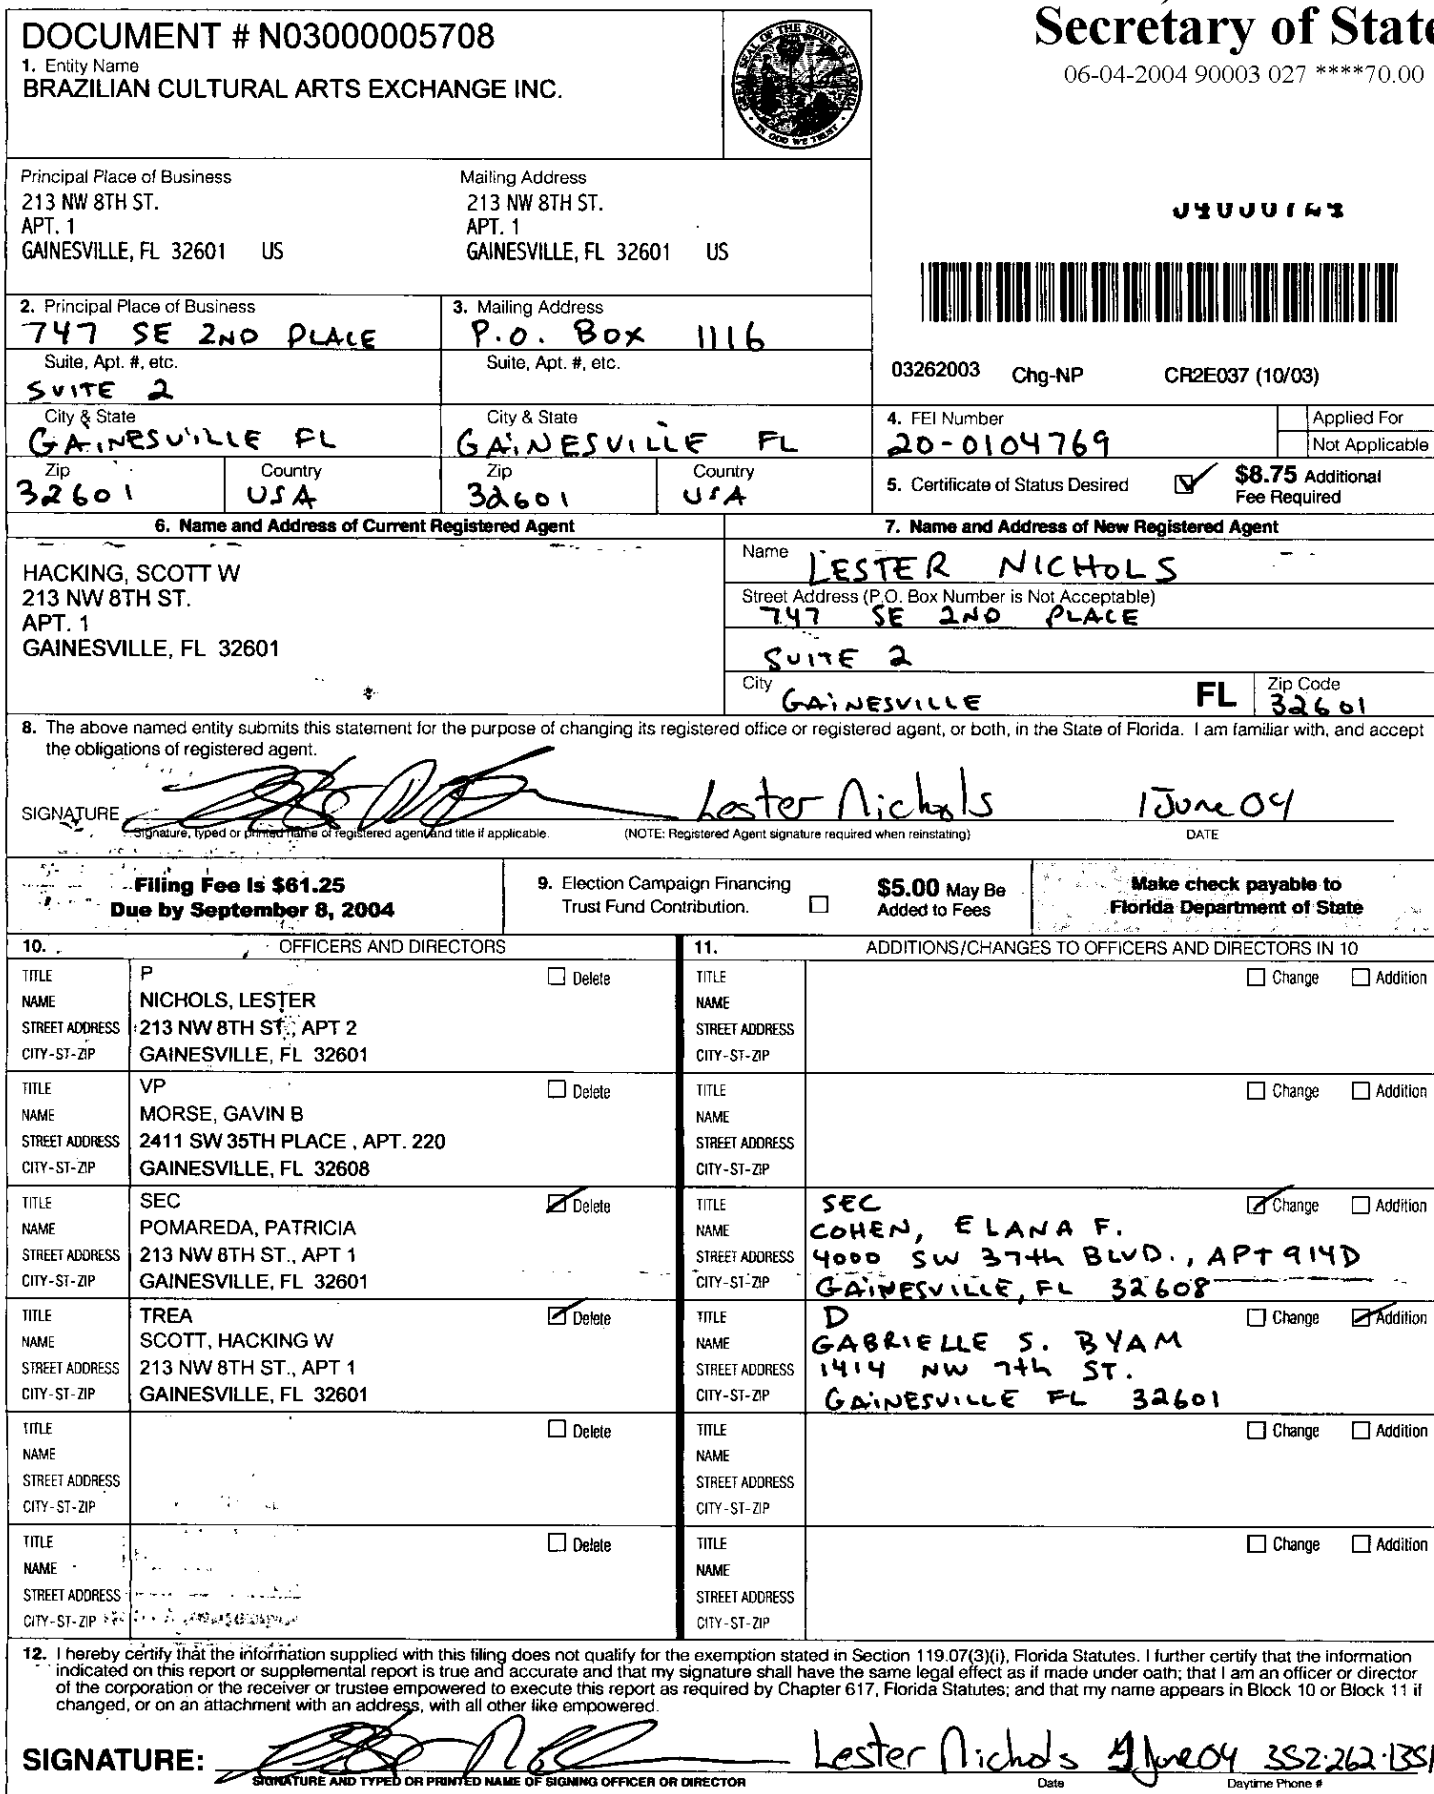 Secretary of State
06-04-2004 90003 027 ****70.00
DOCUMENT # N03000005708
1. Entity Name
BRAZILIAN CULTURAL ARTS EXCHANGE INC.
GREAT SEAL OF THE STATE OF FLORIDA
IN GOD WE TRUST
Principal Place of Business
213 NW 8TH ST.
APT. 1
GAINESVILLE, FL 32601 US
Mailing Address
213 NW 8TH ST.
APT. 1
GAINESVILLE, FL 32601 US
2. Principal Place of Business
747 SE 2ND PLACE
Suite, Apt. #, etc.
SUITE 2
City & State
GAINESVILLE FL
Zip Country
32601 USA
3. Mailing Address
P.O. BOX 1116
Suite, Apt. #, etc.
City & State
GAINESVILLE FL
Zip Country
32601 USA
03262003 Chg-NP CR2E037 (10/03)
4. FEI Number
20-0104769
Applied For
Not Applicable
5. Certificate of Status Desired
$8.75 Additional
Fee Required
6. Name and Address of Current Registered Agent
HACKING, SCOTT W
213 NW 8TH ST.
APT. 1
GAINESVILLE, FL 32601
7. Name and Address of New Registered Agent
Name LESTER NICHOLS
Street Address (P.O. Box Number is Not Acceptable)
747 SE 2ND PLACE
SUITE 2
City GAINESVILLE FL Zip Code 32601
8. The above named entity submits this statement for the purpose of changing its registered office or registered agent, or both, in the State of Florida. I am familiar with, and accept
the obligations of registered agent.
SIGNATURE Lester Nichols 1 June 04
Signature, typed or printed name of registered agent and title if applicable. (NOTE: Registered Agent signature required when reinstating) DATE
Filing Fee Is $61.25
Due by September 8, 2004
9. Election Campaign Financing
Trust Fund Contribution.
$5.00 May Be
Added to Fees
Make check payable to
Florida Department of State
10. OFFICERS AND DIRECTORS
TITLE P Delete
NAME NICHOLS, LESTER
STREET ADDRESS 213 NW 8TH ST., APT 2
CITY-ST-ZIP GAINESVILLE, FL 32601
TITLE VP Delete
NAME MORSE, GAVIN B
STREET ADDRESS 2411 SW 35TH PLACE , APT. 220
CITY-ST-ZIP GAINESVILLE, FL 32608
TITLE SEC Delete
NAME POMAREDA, PATRICIA
STREET ADDRESS 213 NW 8TH ST., APT 1
CITY-ST-ZIP GAINESVILLE, FL 32601
TITLE TREA Delete
NAME SCOTT, HACKING W
STREET ADDRESS 213 NW 8TH ST., APT 1
CITY-ST-ZIP GAINESVILLE, FL 32601
TITLE Delete
NAME
STREET ADDRESS
CITY-ST-ZIP
TITLE Delete
NAME
STREET ADDRESS
CITY-ST-ZIP
11. ADDITIONS/CHANGES TO OFFICERS AND DIRECTORS IN 10
TITLE Change Addition
NAME
STREET ADDRESS
CITY-ST-ZIP
TITLE Change Addition
NAME
STREET ADDRESS
CITY-ST-ZIP
TITLE SEC Change Addition
NAME COHEN, ELANA F.
STREET ADDRESS 4000 SW 37th BLVD., APT 914D
CITY-ST-ZIP GAINESVILLE, FL 32608
TITLE D Change Addition
NAME GABRIELLE S. BYAM
STREET ADDRESS 1414 NW 7th ST.
CITY-ST-ZIP GAINESVILLE FL 32601
TITLE Change Addition
NAME
STREET ADDRESS
CITY-ST-ZIP
TITLE Change Addition
NAME
STREET ADDRESS
CITY-ST-ZIP
12. I hereby certify that the information supplied with this filing does not qualify for the exemption stated in Section 119.07(3)(i), Florida Statutes. I further certify that the information
indicated on this report or supplemental report is true and accurate and that my signature shall have the same legal effect as if made under oath; that I am an officer or director
of the corporation or the receiver or trustee empowered to execute this report as required by Chapter 617, Florida Statutes; and that my name appears in Block 10 or Block 11 if
changed, or on an attachment with an address, with all other like empowered.
SIGNATURE: Lester Nichols 1 June 04 352-262-1351
SIGNATURE AND TYPED OR PRINTED NAME OF SIGNING OFFICER OR DIRECTOR Date Daytime Phone #